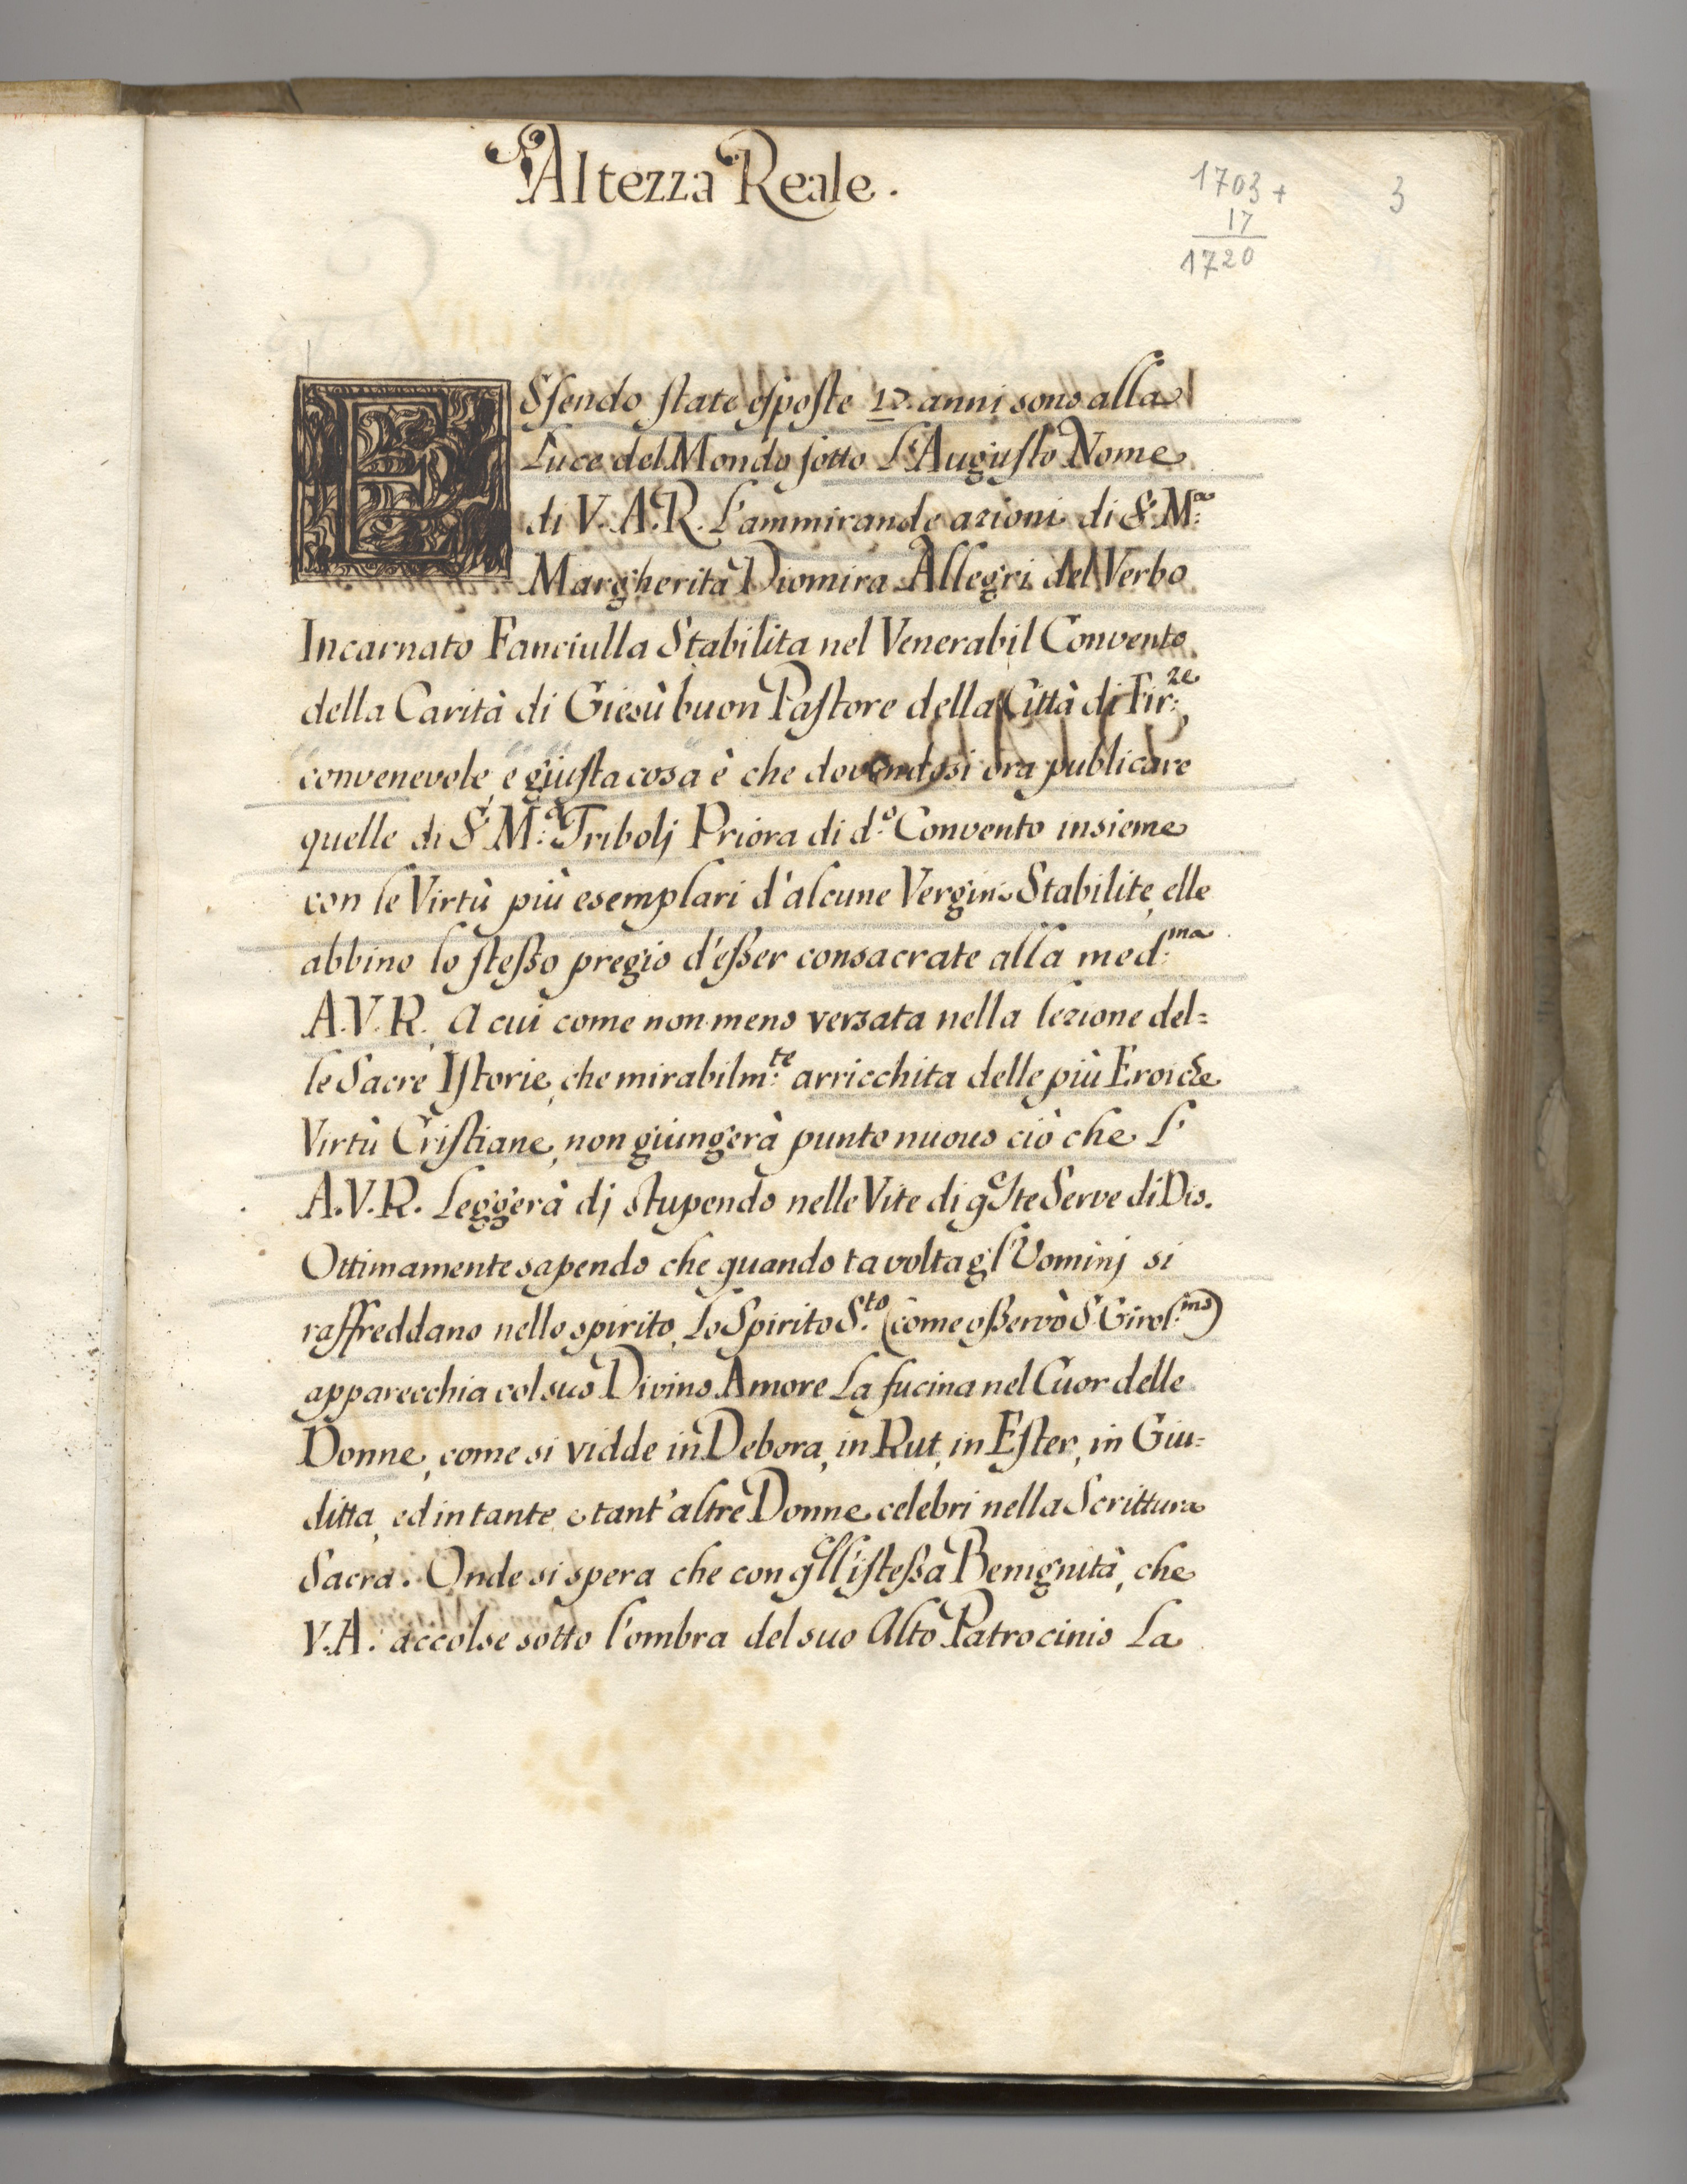 Altezza Reale.
1703 +
17
1720
3
Essendo state esposte 17. anni sono alla
Luce del Mondo sotto L'Augusto Nome
di V. A. R. L'ammirande azioni di Sr. Ma:
Margherita Diomira Allegri del Verbo
Incarnato Fanciulla Stabilita nel Venerabil Convento
della Carità di Giesù buon Pastore della Città di Fir:ze,
convenevole, e giusta cosa è che dovendosi ora publicare
quelle di Sr. M:a Tribolj Priora di d:o Convento insieme
con le Virtù più esemplari d'alcune Vergini Stabilite, elle
abbino lo stesso pregio d'esser consacrate alla med:ma
A. V. R. A cui come non meno versata nella lezione del=
le Sacre Istorie, che mirabilm:te arricchita delle più Eroiche
Virtù Cristiane, non giungerà punto nuovo ciò che l'
A. V. R. Leggerà dj stupendo nelle Vite di qste Serve di Dio.
Ottimamente sapendo che quando tavolta gl'Uominj si
raffreddano nello spirito, Lo Spirito S.to (come osservò S. Girol:mo)
apparecchia col suo Divino Amore La fucina nel Cuor delle
Donne, come si vidde in Debora, in Rut, in Ester, in Giu=
ditta, ed in tante, e tant'altre Donne celebri nella Scrittura
Sacra. Onde si spera che con qll'istessa Benignità, che
V. A. accolse sotto l'ombra del suo Alto Patrocinio La